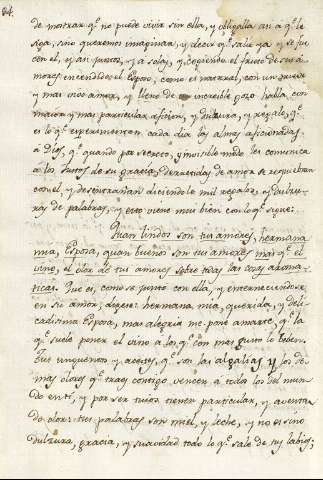 84.
de mostrar qᵉ no puede vivir sin ella, y obligalla an a qᵉ le
siga, sino queremos imaginar, y decir qᵉ salie ya y se fue
con el, y an juntos, y a solas, y cogiendo el fruto de sus a-
mores encendidos el Esposo, como es natural, con un nuevo
y mas amor, y lleno de increible gozo habla con
maior y mas particular aficion, y dulzura, y regalo, qᵉ
es lo qᵉ experimentan cada dia las almas aficionadas
a Dios, qᵉ quando por secreto, y invisible modo les comunica
a los de su gracia, derretidas de amor se requiebran
con el y desentrañan diciendole mil regalos, y dulzu-
ras de palabras, y esto viene mui bien con lo qᵉ sigue.
Quan lindos son tus amores, hermana
mia, Esposa, quan buenos son tus amores mas qᵉ el
vino, el olor de tus amores sobre todas las cosas aroma-
ticas. Que es, como se junto con ella, y enterneciendose
en su amor, dicese: hermana mia, querida, y deli-
cadisima Esposa, mas alegria me pone amarte, qᵉ la
qᵉ suele poner el vino a los qᵉ con mas gusto le beben.
Tus unguentos, y aceites, qᵉ son las algalias y los de
mas olores qᵉ traes contigo vencen a todos los del mun
do en ti, y por ser tuios tienen particular, y aventa
do olor: tus palabras son miel, y leche, y no es sino
dulzura, gracia, y suavidad todo lo qᵉ sale de tus labios;